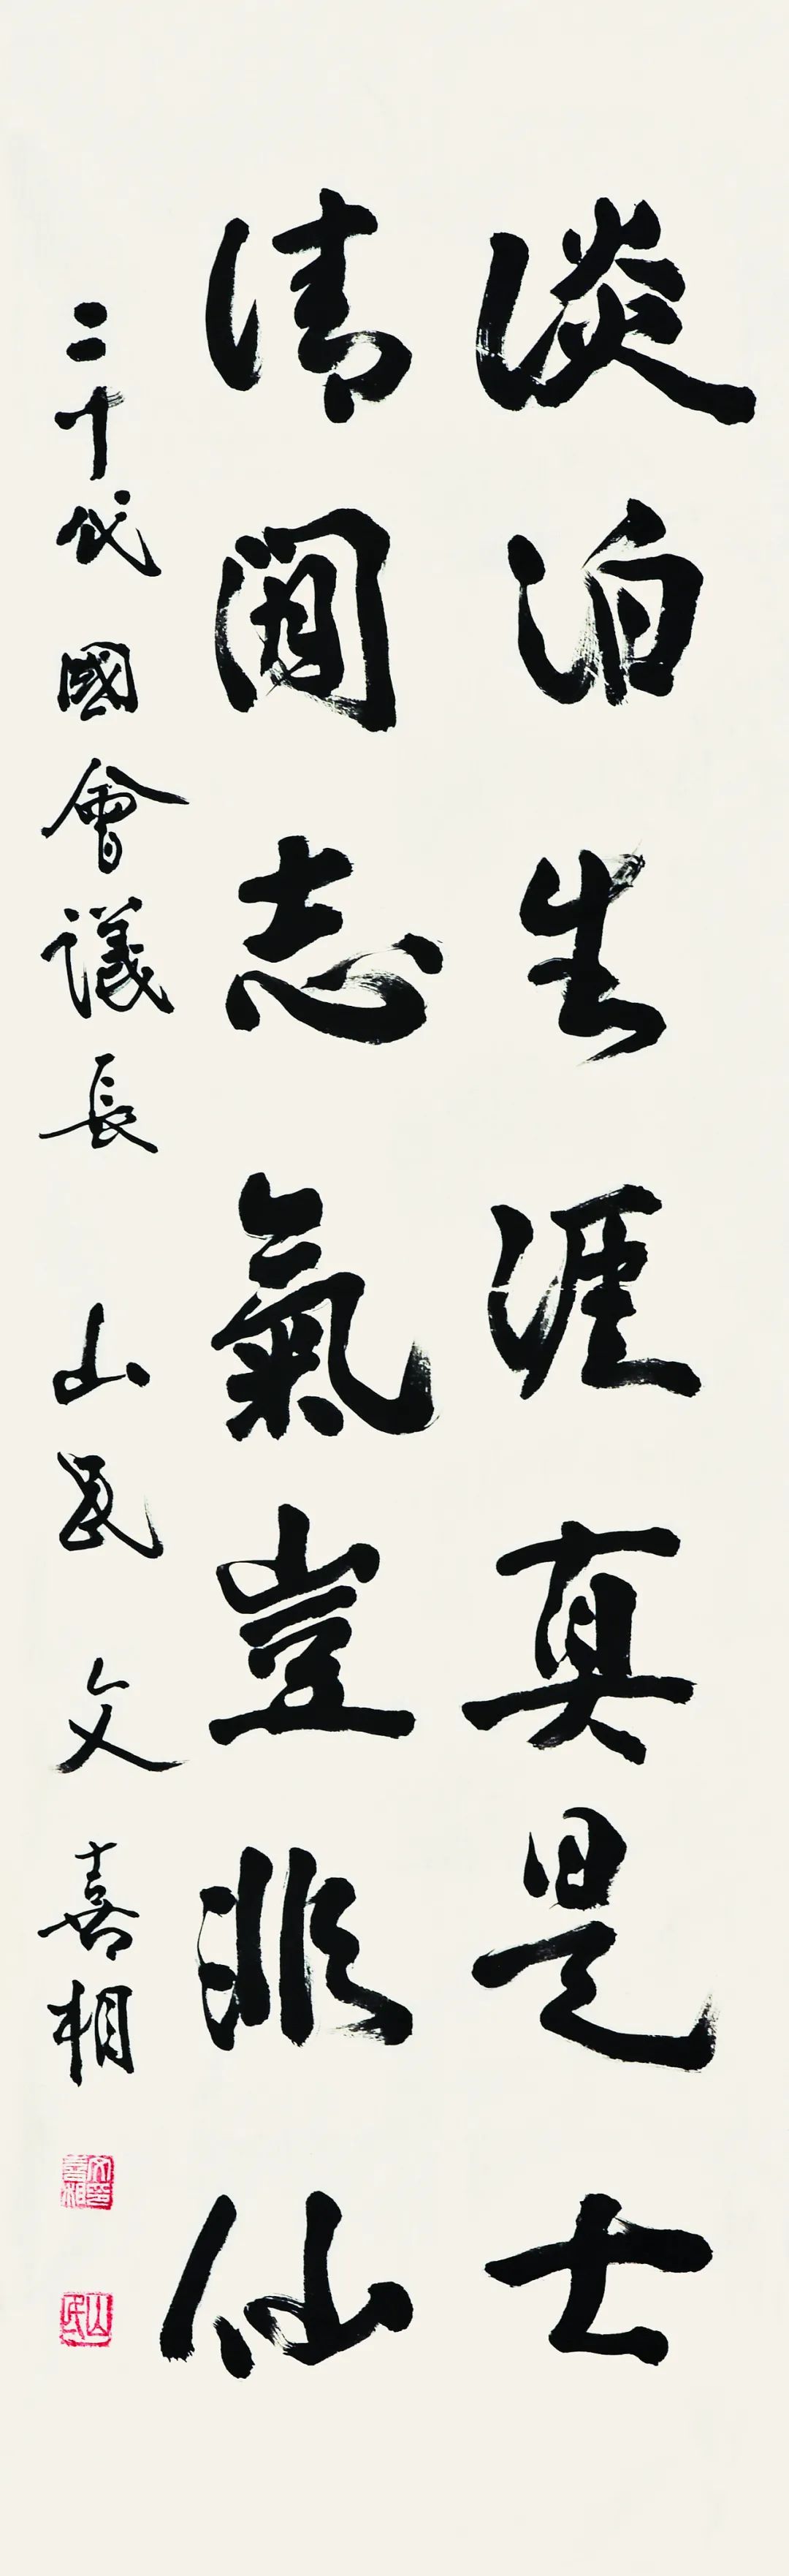 淡泊生涯真是士
清閒志氣豈非仙
二十代 國會議長 山民 文喜相
文喜相印
山民